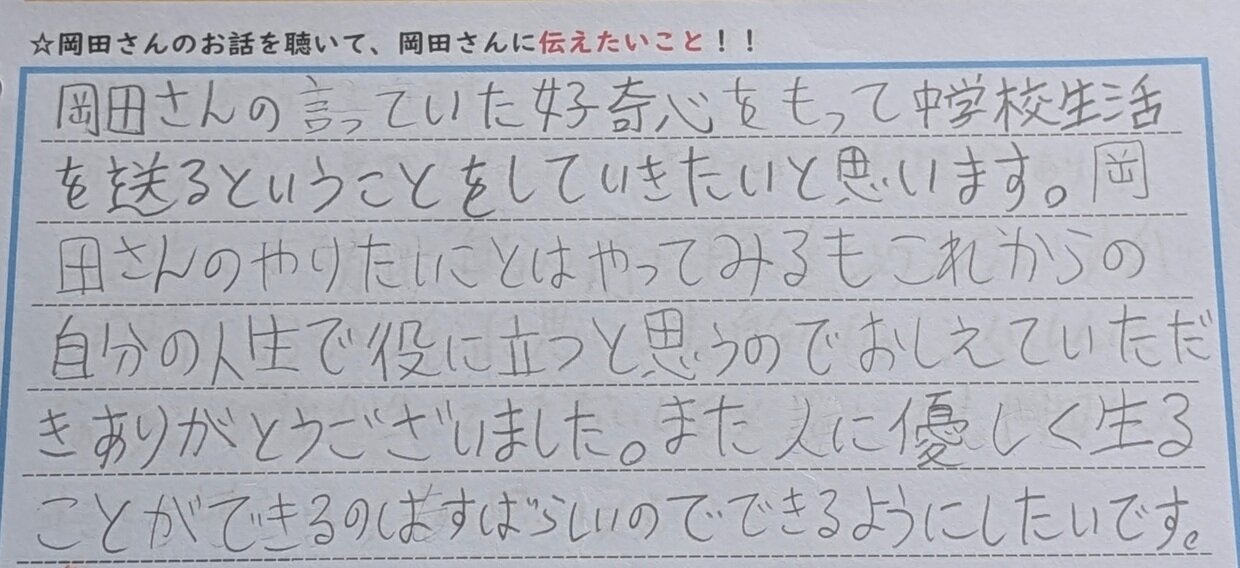 ☆岡田さんのお話を聴いて、岡田さんに伝えたいこと！！
岡田さんの言っていた好奇心をもって中学校生活
を送るということをしていきたいと思います。岡
田さんのやりたいことはやってみるもこれからの
自分の人生で役に立つと思うのでおしえていただ
きありがとうございました。また人に優しく生る
ことができるのはすばらしいのでできるようにしたいです。